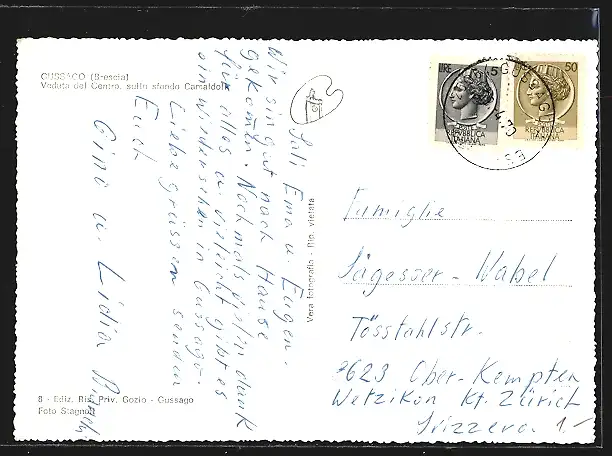 GUSSAGO (Brescia)
Veduta del Centro, sullo sfondo Camaldoli
Sali Ema u. Eugen.
Wir sin gut nach Hause
gekomen. Nochmals vielen dank
für alles u. vieleicht gibt es
ein wiedersehen in Gussago.
Liebe grüssen senden
Euch
Gino u. Lidia
Vera fotografia - Rip. vietata
8 - Ediz. Ris. Priv. Gozio - Gussago
Foto Stagnoli
LIRE
POSTE
REPUBBLICA
ITALIANA
50
REPUBBLICA
ITALIANA
Famiglie
Sägesser - Nabel
Tösstahlstr.
8623 Ober-Kempten
Wetzikon Kt. Zürich
Svizzera 1.-